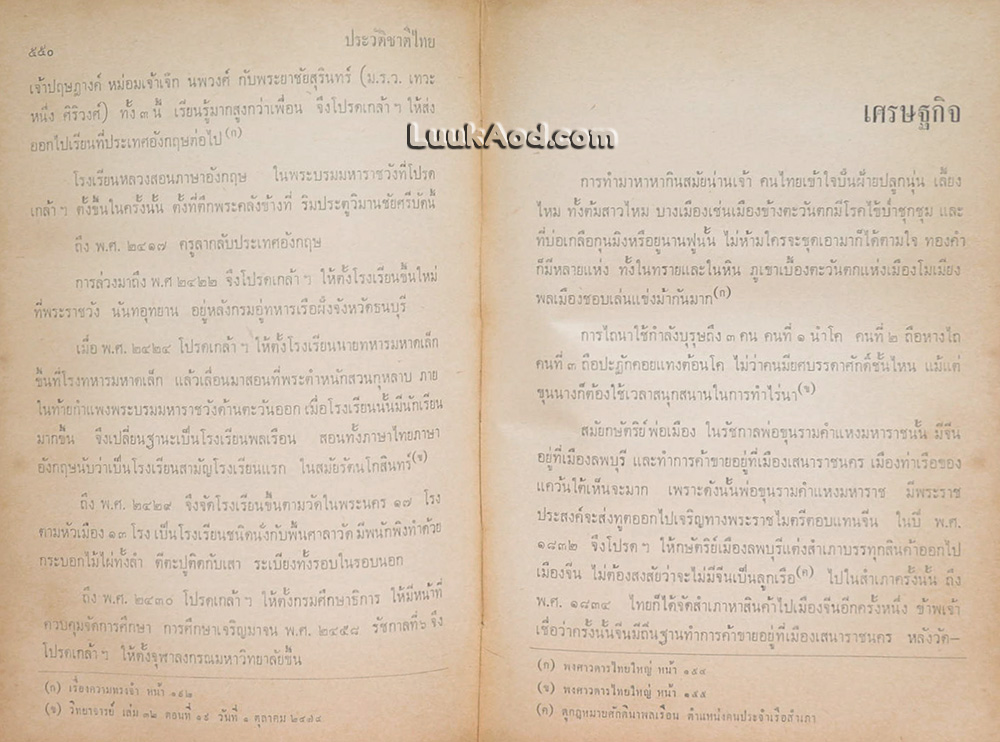 ๕๕๐
ประวัติชาติไทย
เจ้าปฤษฎางค์ หม่อมเจ้าเจ๊ก นพวงศ์ กับพระยาชัยสุรินทร์ (ม.ร.ว. เทวะ
หนึ่ง ศิริวงศ์) ทั้ง ๓ นี้ เรียนรู้มากสูงกว่าเพื่อน จึงโปรดเกล้า ฯ ให้ส่ง
ออกไปเรียนที่ประเทศอังกฤษต่อไป (ก)
โรงเรียนหลวงสอนภาษาอังกฤษ ในพระบรมมหาราชวังที่โปรด
เกล้า ฯ ตั้งขึ้นในครั้งนั้น ตั้งที่ตึกพระคลังข้างที่ ริมประตูวิมานชัยศรีบัดนี้
ถึง พ.ศ. ๒๔๑๗ ครูลากลับประเทศอังกฤษ
การล่วงมาถึง พ.ศ ๒๔๒๒ จึงโปรดเกล้า ฯ ให้ตั้งโรงเรียนขึ้นใหม่
ที่พระราชวัง นันทอุทยาน อยู่หลังกรมอู่ทหารเรือฝั่งจังหวัดธนบุรี
เมื่อ พ.ศ. ๒๔๒๔ โปรดเกล้า ฯ ให้ตั้งโรงเรียนนายทหารมหาดเล็ก
ขึ้นที่โรงทหารมหาดเล็ก แล้วเลื่อนมาสอนที่พระตำหนักสวนกุหลาบ ภาย
ในท้ายกำแพงพระบรมมหาราชวังด้านตะวันออก เมื่อโรงเรียนนั้นมีนักเรียน
มากขึ้น จึงเปลี่ยนฐานะเป็นโรงเรียนพลเรือน สอนทั้งภาษาไทยภาษา
อังกฤษนับว่าเป็นโรงเรียนสามัญโรงเรียนแรก ในสมัยรัตนโกสินทร์ (ข)
ถึง พ.ศ. ๒๔๒๙ จึงจัดโรงเรียนขึ้นตามวัดในพระนคร ๑๗ โรง
ตามหัวเมือง ๑๓ โรง เป็นโรงเรียนชนิดนั่งกับพื้นศาลาวัด มีพนักพิงทำด้วย
กระบอกไม้ไผ่ทั้งลำ ตีตะปูติดกับเสา ระเบียงทั้งรอบในรอบนอก
ถึง พ.ศ. ๒๔๓๐ โปรดเกล้า ฯ ให้ตั้งกรมศึกษาธิการ ให้มีหน้าที่
ควบคุมจัดการศึกษา การศึกษาเจริญมาจน พ.ศ. ๒๔๕๘ รัชกาลที่ ๖ จึง
โปรดเกล้า ฯ ให้ตั้งจุฬาลงกรณมหาวิทยาลัยขึ้น
(ก) เรื่องความทรงจำ หน้า ๑๙๒
(ข) วิทยาจารย์ เล่ม ๓๒ ตอนที่ ๑๙ วันที่ ๑ ตุลาคม ๒๔๗๔
LuukAod.com
เศรษฐกิจ
การทำมาหาหากินสมัยน่านเจ้า คนไทยเข้าใจปั่นฝ้ายปลูกนุ่น เลี้ยง
ไหม ทั้งต้มสาวไหม บางเมืองเช่นเมืองข้างตะวันตกมีโรคไข้ป่าชุกชุม และ
ที่บ่อเกลือกุนมิงหรือยูนานฟูนั้น ไม่ห้ามใครจะขุดเอามาก็ได้ตามใจ ทองคำ
ก็มีหลายแห่ง ทั้งในทรายและในหิน ภูเขาเบื้องตะวันตกแห่งเมืองโมเมียง
พลเมืองชอบเล่นแข่งม้ากันมาก (ก)
การไถนาใช้กำลังบุรุษถึง ๓ คน คนที่ ๑ นำโค คนที่ ๒ ถือหางไถ
คนที่ ๓ ถือปะฏักคอยแทงต้อนโค ไม่ว่าคนมียศบรรดาศักดิ์ชั้นไหน แม้แต่
ขุนนางก็ต้องใช้เวลาสนุกสนานในการทำไร่นา (ข)
สมัยกษัตริย์พ่อเมือง ในรัชกาลพ่อขุนรามคำแหงมหาราชนั้น มีจีน
อยู่ที่เมืองลพบุรี และทำการค้าขายอยู่ที่เมืองเสนาราชนคร เมืองท่าเรือของ
แคว้นใต้เห็นจะมาก เพราะดังนั้นพ่อขุนรามคำแหงมหาราช มีพระราช
ประสงค์จะส่งทูตออกไปเจริญทางพระราชไมตรีตอบแทนจีน ในปี พ.ศ.
๑๘๓๒ จึงโปรด ฯ ให้กษัตริย์เมืองลพบุรีแต่งสำเภาบรรทุกสินค้าออกไป
เมืองจีน ไม่ต้องสงสัยว่าจะไม่มีจีนเป็นลูกเรือ (ค) ไปในสำเภาครั้งนั้น ถึง
พ.ศ. ๑๘๓๔ ไทยก็ได้จัดสำเภาหาสินค้าไปเมืองจีนอีกครั้งหนึ่ง ข้าพเจ้า
เชื่อว่าครั้งนั้นจีนมีถิ่นฐานทำการค้าขายอยู่ที่เมืองเสนาราชนคร หลังวัด-
(ก) พงศาวดารไทยใหญ่ หน้า ๑๕๔
(ข) พงศาวดารไทยใหญ่ หน้า ๑๕๕
(ค) ดูกฎหมายศักดินาพลเรือน ตำแหน่งคนประจำเรือสำเภา